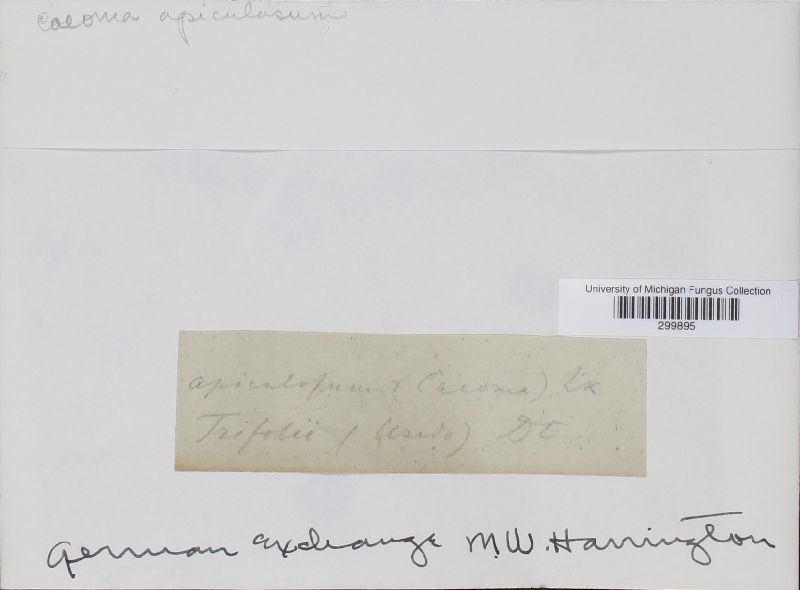 Caeoma apiculosum
University of Michigan Fungus Collection
299895
apiculosum (Caeoma) Lk
Trifolii (Uredo) DC
German exchange M.W. Harrington